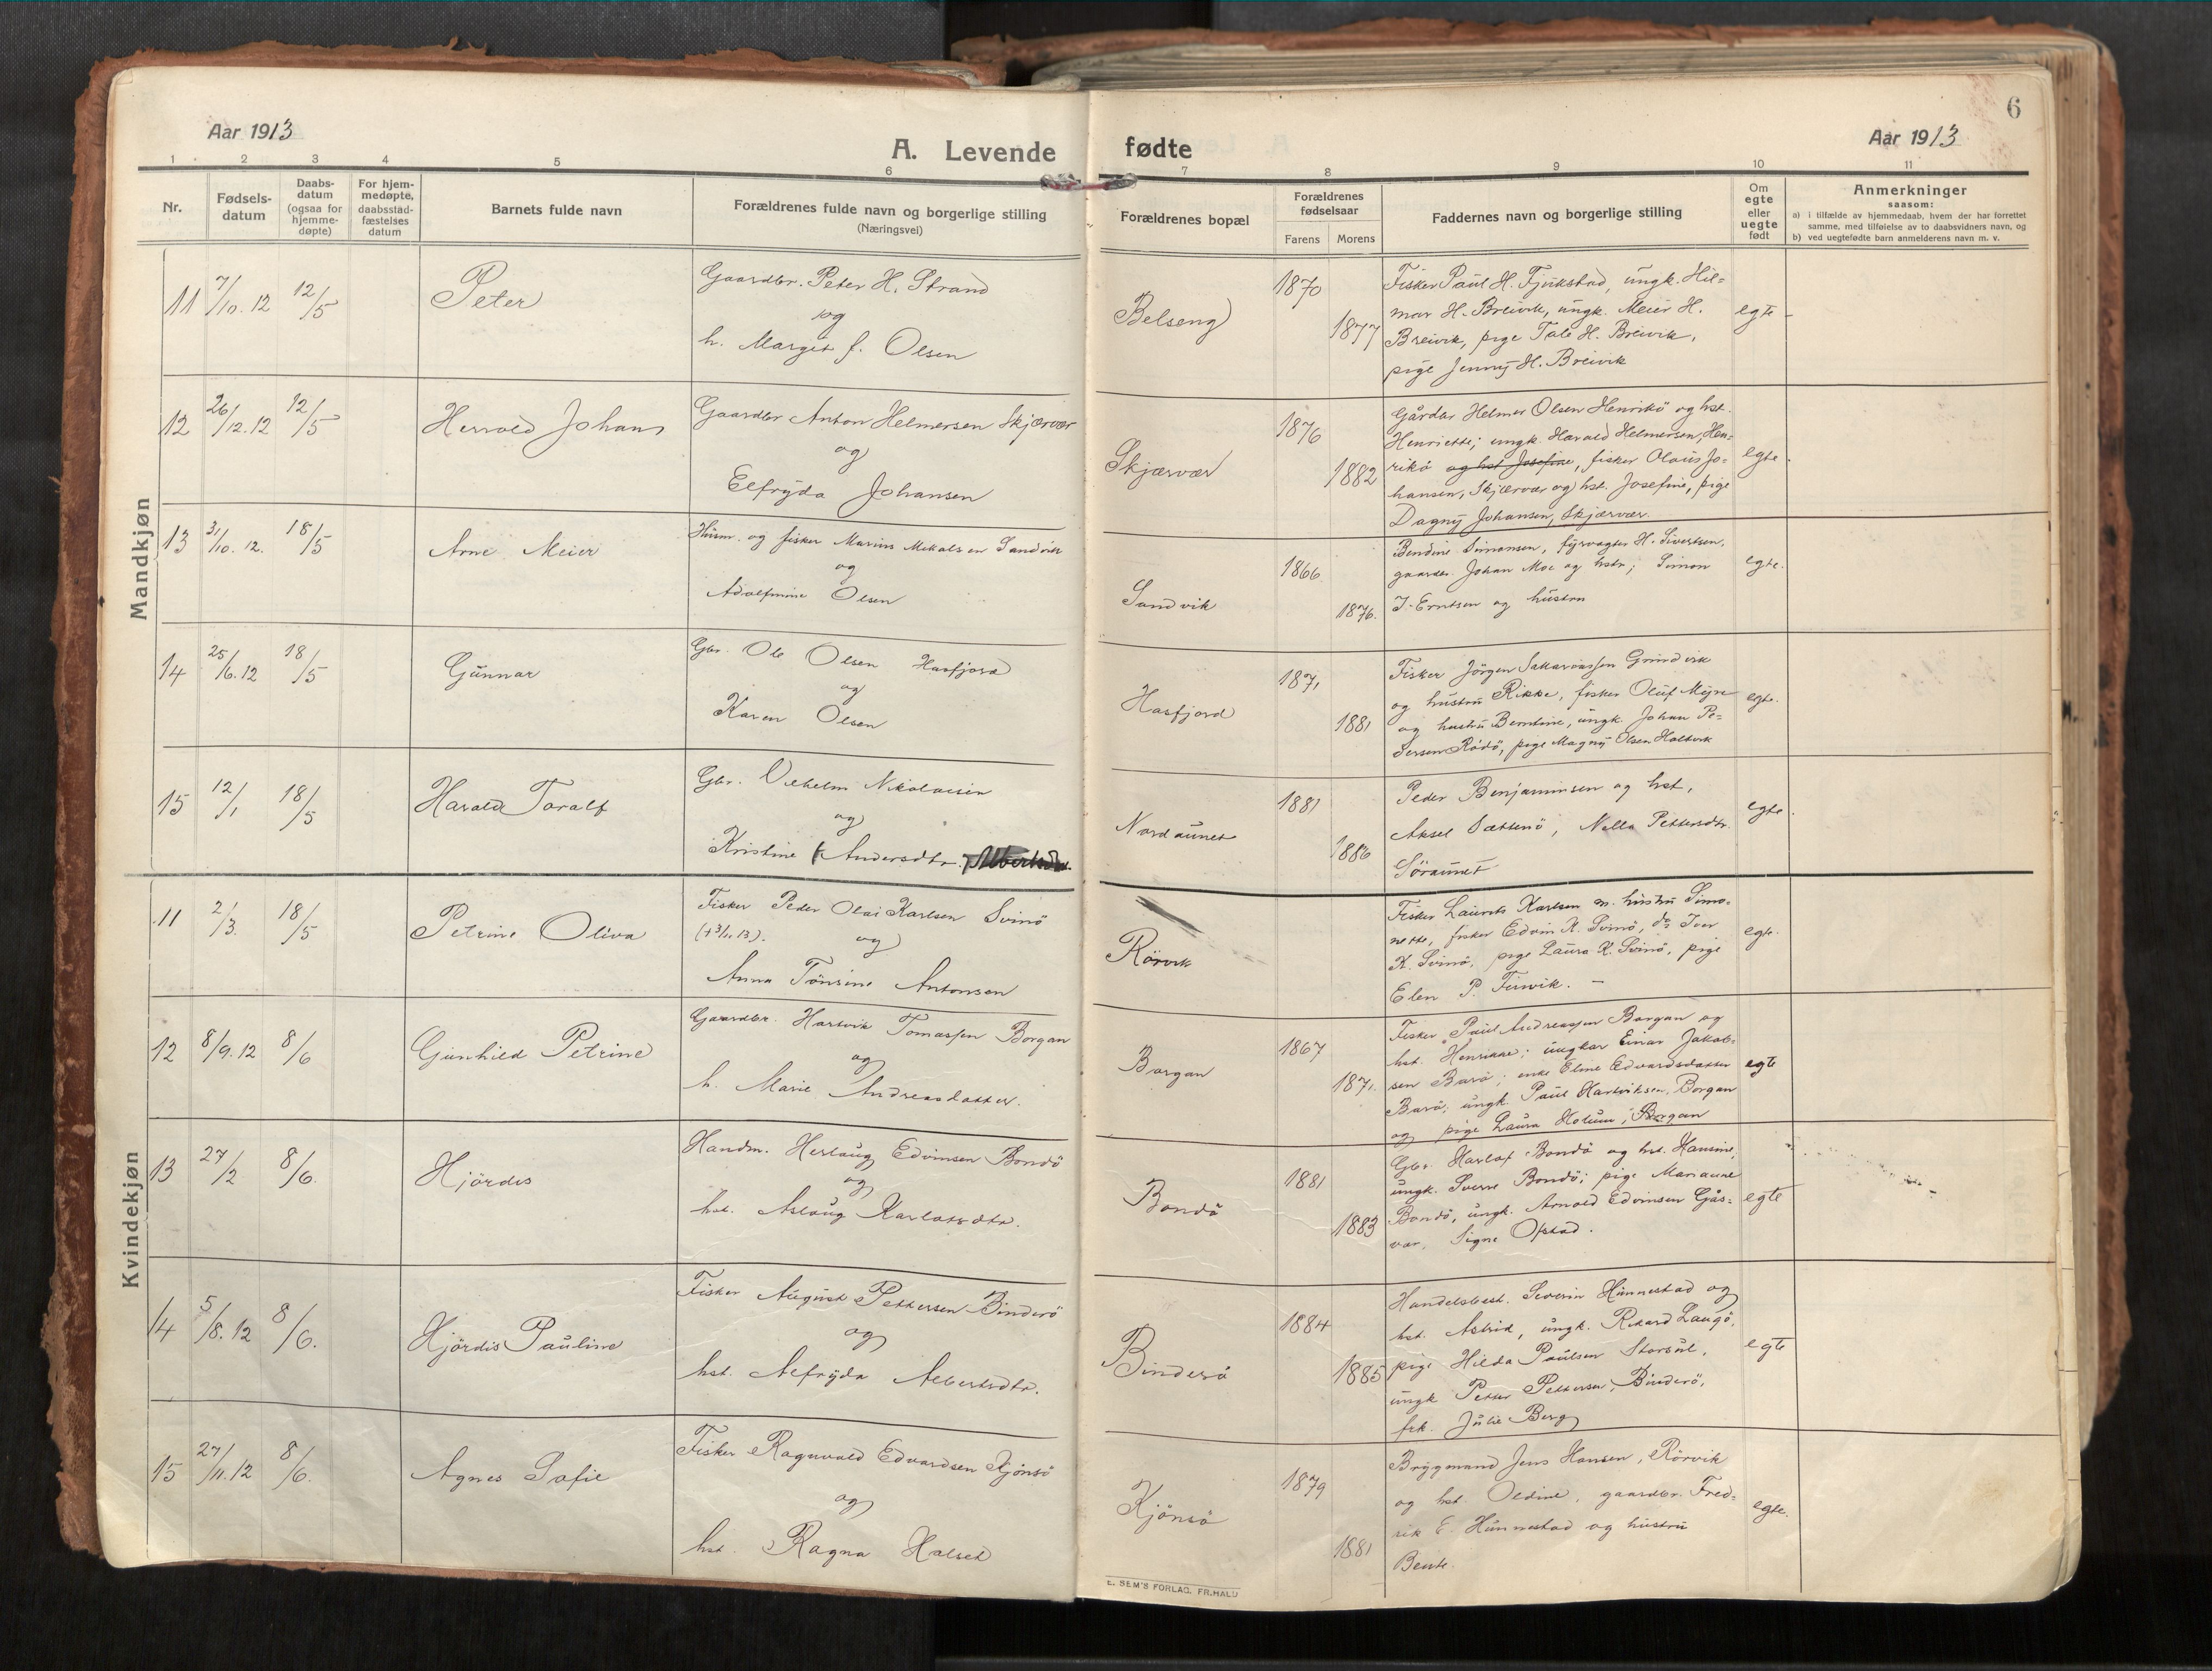 6
Aar 1913
A. Levende fødte
Aar 1913
1 2 3 4 5 6 7 8 9 10 11
Nr.
Fødsels-
datum
Daabs-
datum
(ogsaa for
hjemme-
døpte)
For hjem-
medøpte,
daabsstad-
fæstelses
datum
Barnets fulde navn
Forældrenes fulde navn og borgerlige stilling
(Næringsvei)
Forældrenes bopæl
Forældrenes
fødselsaar
Farens Morens
Faddernes navn og borgerlige stilling
Om
egte
eller
uegte
født
Anmerkninger
saasom:
a) i tilfælde av hjemmedaab, hvem der har forrettet
samme, med tilføielse av to daabsvidners navn, og
b) ved uegtefødte barn anmelderens navn m. v.
Mandkjøn
11 7/10. 12 12/5 Peter
Gaardbr. Peter H. Strand
og
h. Margit f. Olsen
Belseng
1870
1877
Fisker Paul H. Fjukstad, ungk. Hil-
mar H. Breivik, ungk. Meier H.
Breivik, pige Tale H. Breivik,
pige Jenny H. Breivik
egte
12 26/12. 12 12/5 Herold Johans
Gaardbr Anton Helmersen Skjærvær
og
Elfryda Johansen
Skjærvær
1876
1882
Gårdbr Helmer Olsen Henrikö og hst.
Henriette; ungk. Harald Helmersen, Hen-
rikö og hst Josefine, fisker Olaus Jo-
hansen, Skjærvær og hst. Josefine, pige
Dagny Johansen, Skjærvær.
egte.
13 31/10. 12. 18/5 Arne Meier
Husm. og fisker Marius Mikalsen Sandvik
og
Adolfmine Olsen
Sandvik
1866
1876.
Bendine Simonsen, fyrvagter H. Sivertsen,
gaardbr. Johan Moe og hstr; Simon
J. Erntsen og hustru
egte.
14 25/6. 12 18/5 Gunnar
Gbr. Ole Olsen Hasfjord
og
Karen Olsen
Hasfjord
1871
1881
Fisker Jörgen Sakariassen Grindvik
og hustru Rikke, fisker Oluf Myre
og hustru Berntine, ungk. Johan Pe-
dersen Rödö, pige Magny Olsen Holtvik
egte.
15 12/1 18/5 Harald Toralf
Gbr. Vilhelm Nikolaisen
og
Kristine (Andersdtr.) Albertsdtr.
Nordaunet
1881
1886
Peder Benjaminsen og hst,
Aksel Sættenö, Nella Pettersdtr.
Söraunet
egte.
Kvindekjøn
11 2/3. 18/5 Petrine Oliva
Fisker Peder Olai Karlsen Svinö
og
Anna Tönsine Antonsen
Rörvik
Fisker Laurits Karlsen m. hustru Simo-
nette, fisker Edvin K. Svinö, do Iver
K. Svinö, pige Laura K. Svinö, pige
Elen P. Finvik. –
egte.
12 8/9. 12 8/6 Gunhild Petrine
Gaardbr. Hartvik Tomassen Borgan
og
h. Marie Andreasdatter.
Borgan
1867
1871.
Fisker Paul Andreassen Borgan og
hst. Henrikke; ungkar Einar Jakob-
sen Barö; enke Eline Edvardsdatter
Barö; ungk. Paul Hartviksen, Borgan
og pige Laura Holum, Borgan
egte
13 27/2 8/6. Hjördis
Handm. Herlaug Edvinsen Bondö
og
hst. Aslaug Karlotsdtr.
Bondö
1881
1883
Gbr. Karlot Bondö og hst. Hansine,
ungk. Sverre Bondö; pige Marianne
Bondö, ungk. Arnold Edvinsen Gås-
vær, Signe Ofstad.
egte
14 5/8. 12 8/6. Hjördis Pauline
Fisker August Pettersen Binderö
og
hst. Alfryda Albertsdtr.
Binderö
1884
1885
Handelsbest. Severin Hunnestad og
hst. Astrid, ungk. Rikard Laugö,
pige Hilda Paulsen Storsul,
ungk Petter Pettersen, Binderö,
frk. Julie Berg
egte
15 27/11. 12 8/6. Agnes Sofie
Fisker Ragnvald Edvardsen Kjönsö
og
hst. Ragna Halset
Kjönsö
1879
1881
Bryggmand Jens Hansen, Rörvik
og hst. Oldine, gaardbr. Fred-
rik E. Hunnestad og hustru
Bente.
egte.
E. SEM'S FORLAG. FR.HALD